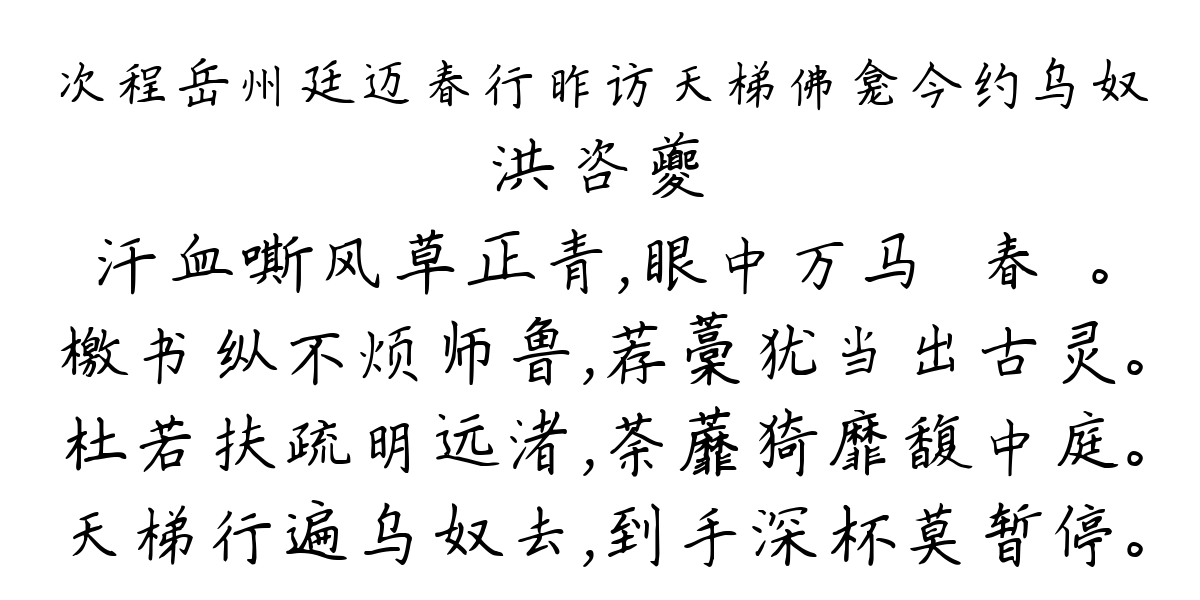 次程岳州廷迈春行昨访天梯佛龛今约乌奴
洪咨夔
汗血嘶风草正青,眼中万马 春 。
檄书纵不烦师鲁,荐藁犹当出古灵。
杜若扶疏明远渚,荼蘼猗靡馥中庭。
天梯行遍乌奴去,到手深杯莫暂停。